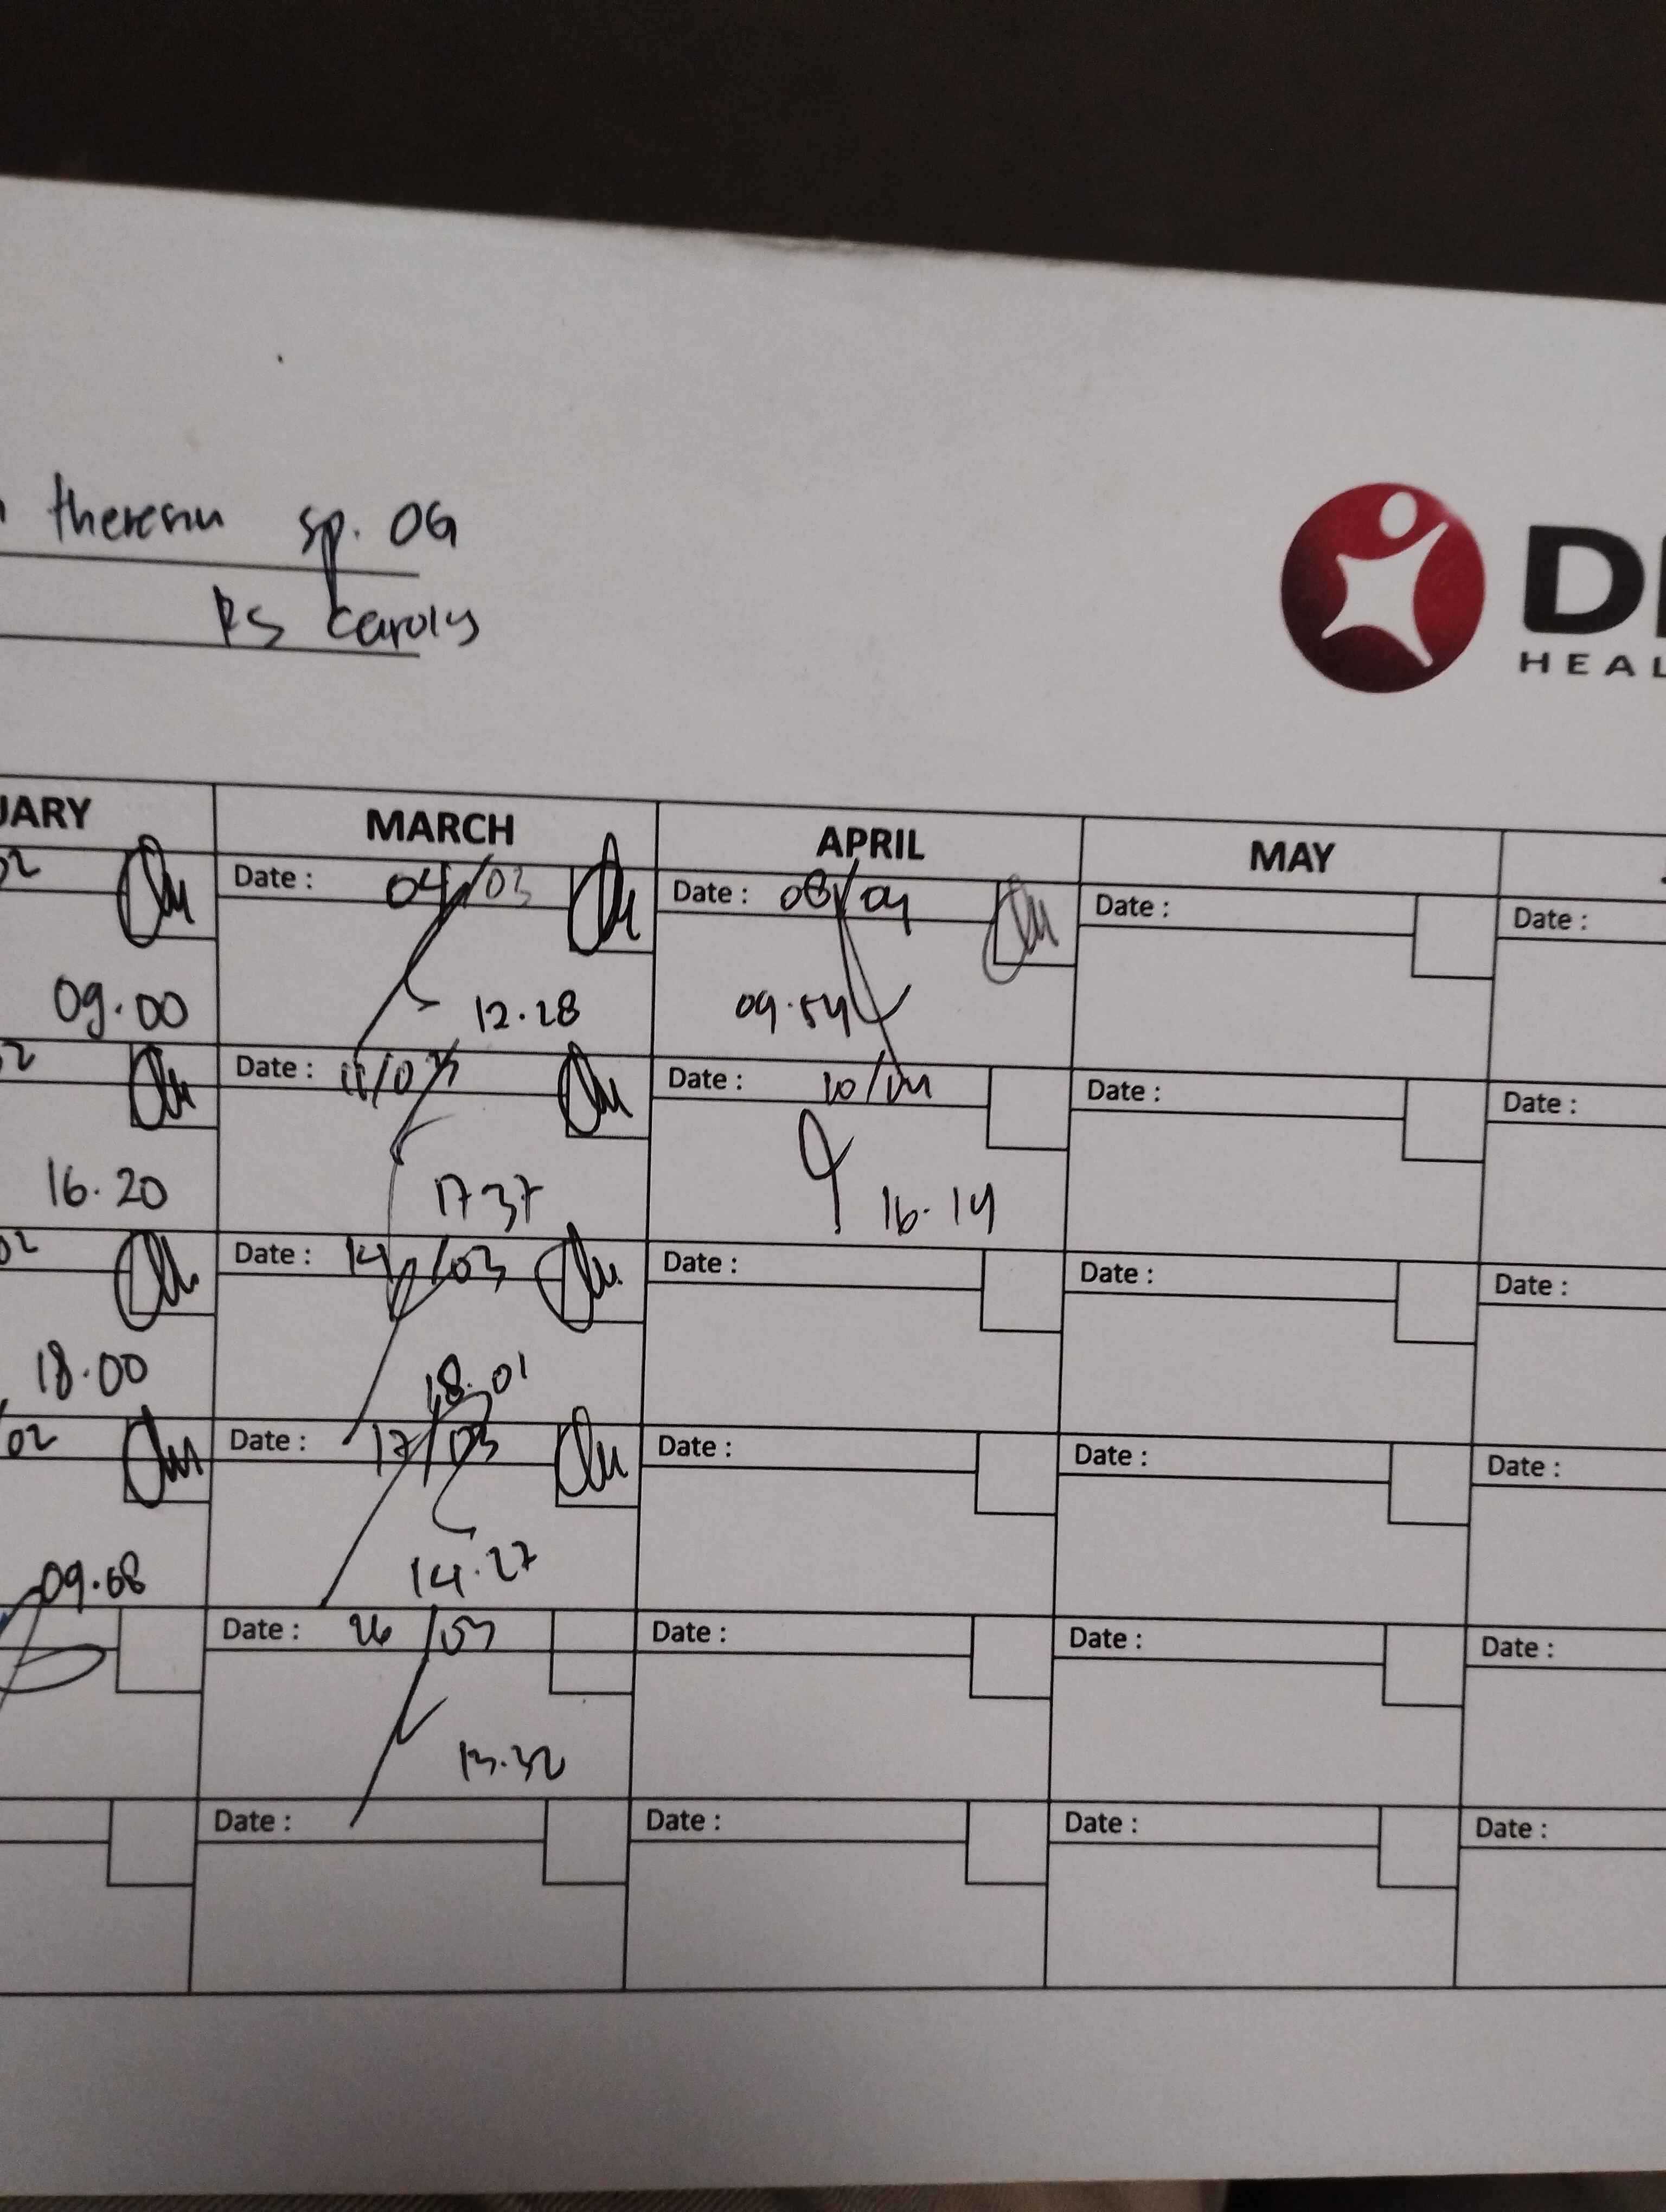 theresia sp. OG
RS Carolus
HEAL
UARY MARCH APRIL MAY
02 Date : 04/03 Date : 08/04 Date : Date :
09.00 12.28 09.54
02 Date : 11/03 Date : 10/04 Date : Date :
16.20 17 37 16.14
02 Date : 14/03 Date : Date : Date :
18.00 18.01
/02 Date : 17/03 Date : Date : Date :
09.08 14.27
Date : 26/03 Date : Date : Date :
13.32
Date : Date : Date : Date :